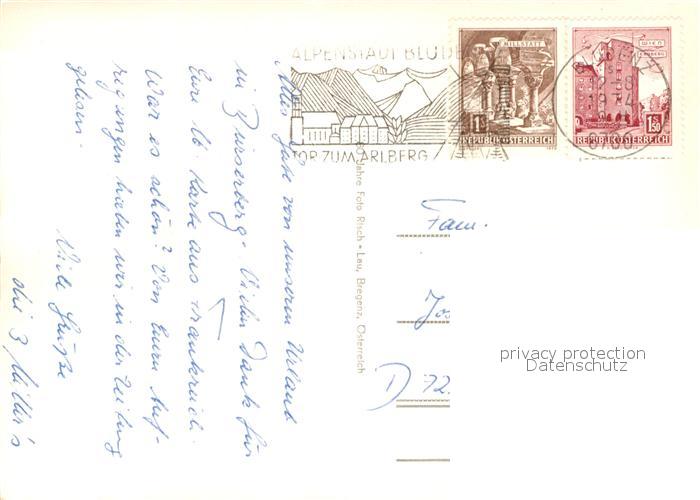 ALPENSTADT BLUDE
TOR ZUM ARLBERG
MILLSTATT
1S
REPUBLIK ÖSTERREICH
WIEN
1.50
REPUBLIK ÖSTERREICH
Alles Gute von unserem Urlaub
in Bürserberg. Vielen Dank für
Eure lb. Karte aus Frankreich.
War es schön? Von Euren Auf-
regungen haben wir in der Zeitung
gelesen.
Viele Grüße
die 3 Müller's
Jahre Foto Risch - Lau, Bregenz, Österreich
Fam.
Jos
D 72
privacy protection
Datenschutz